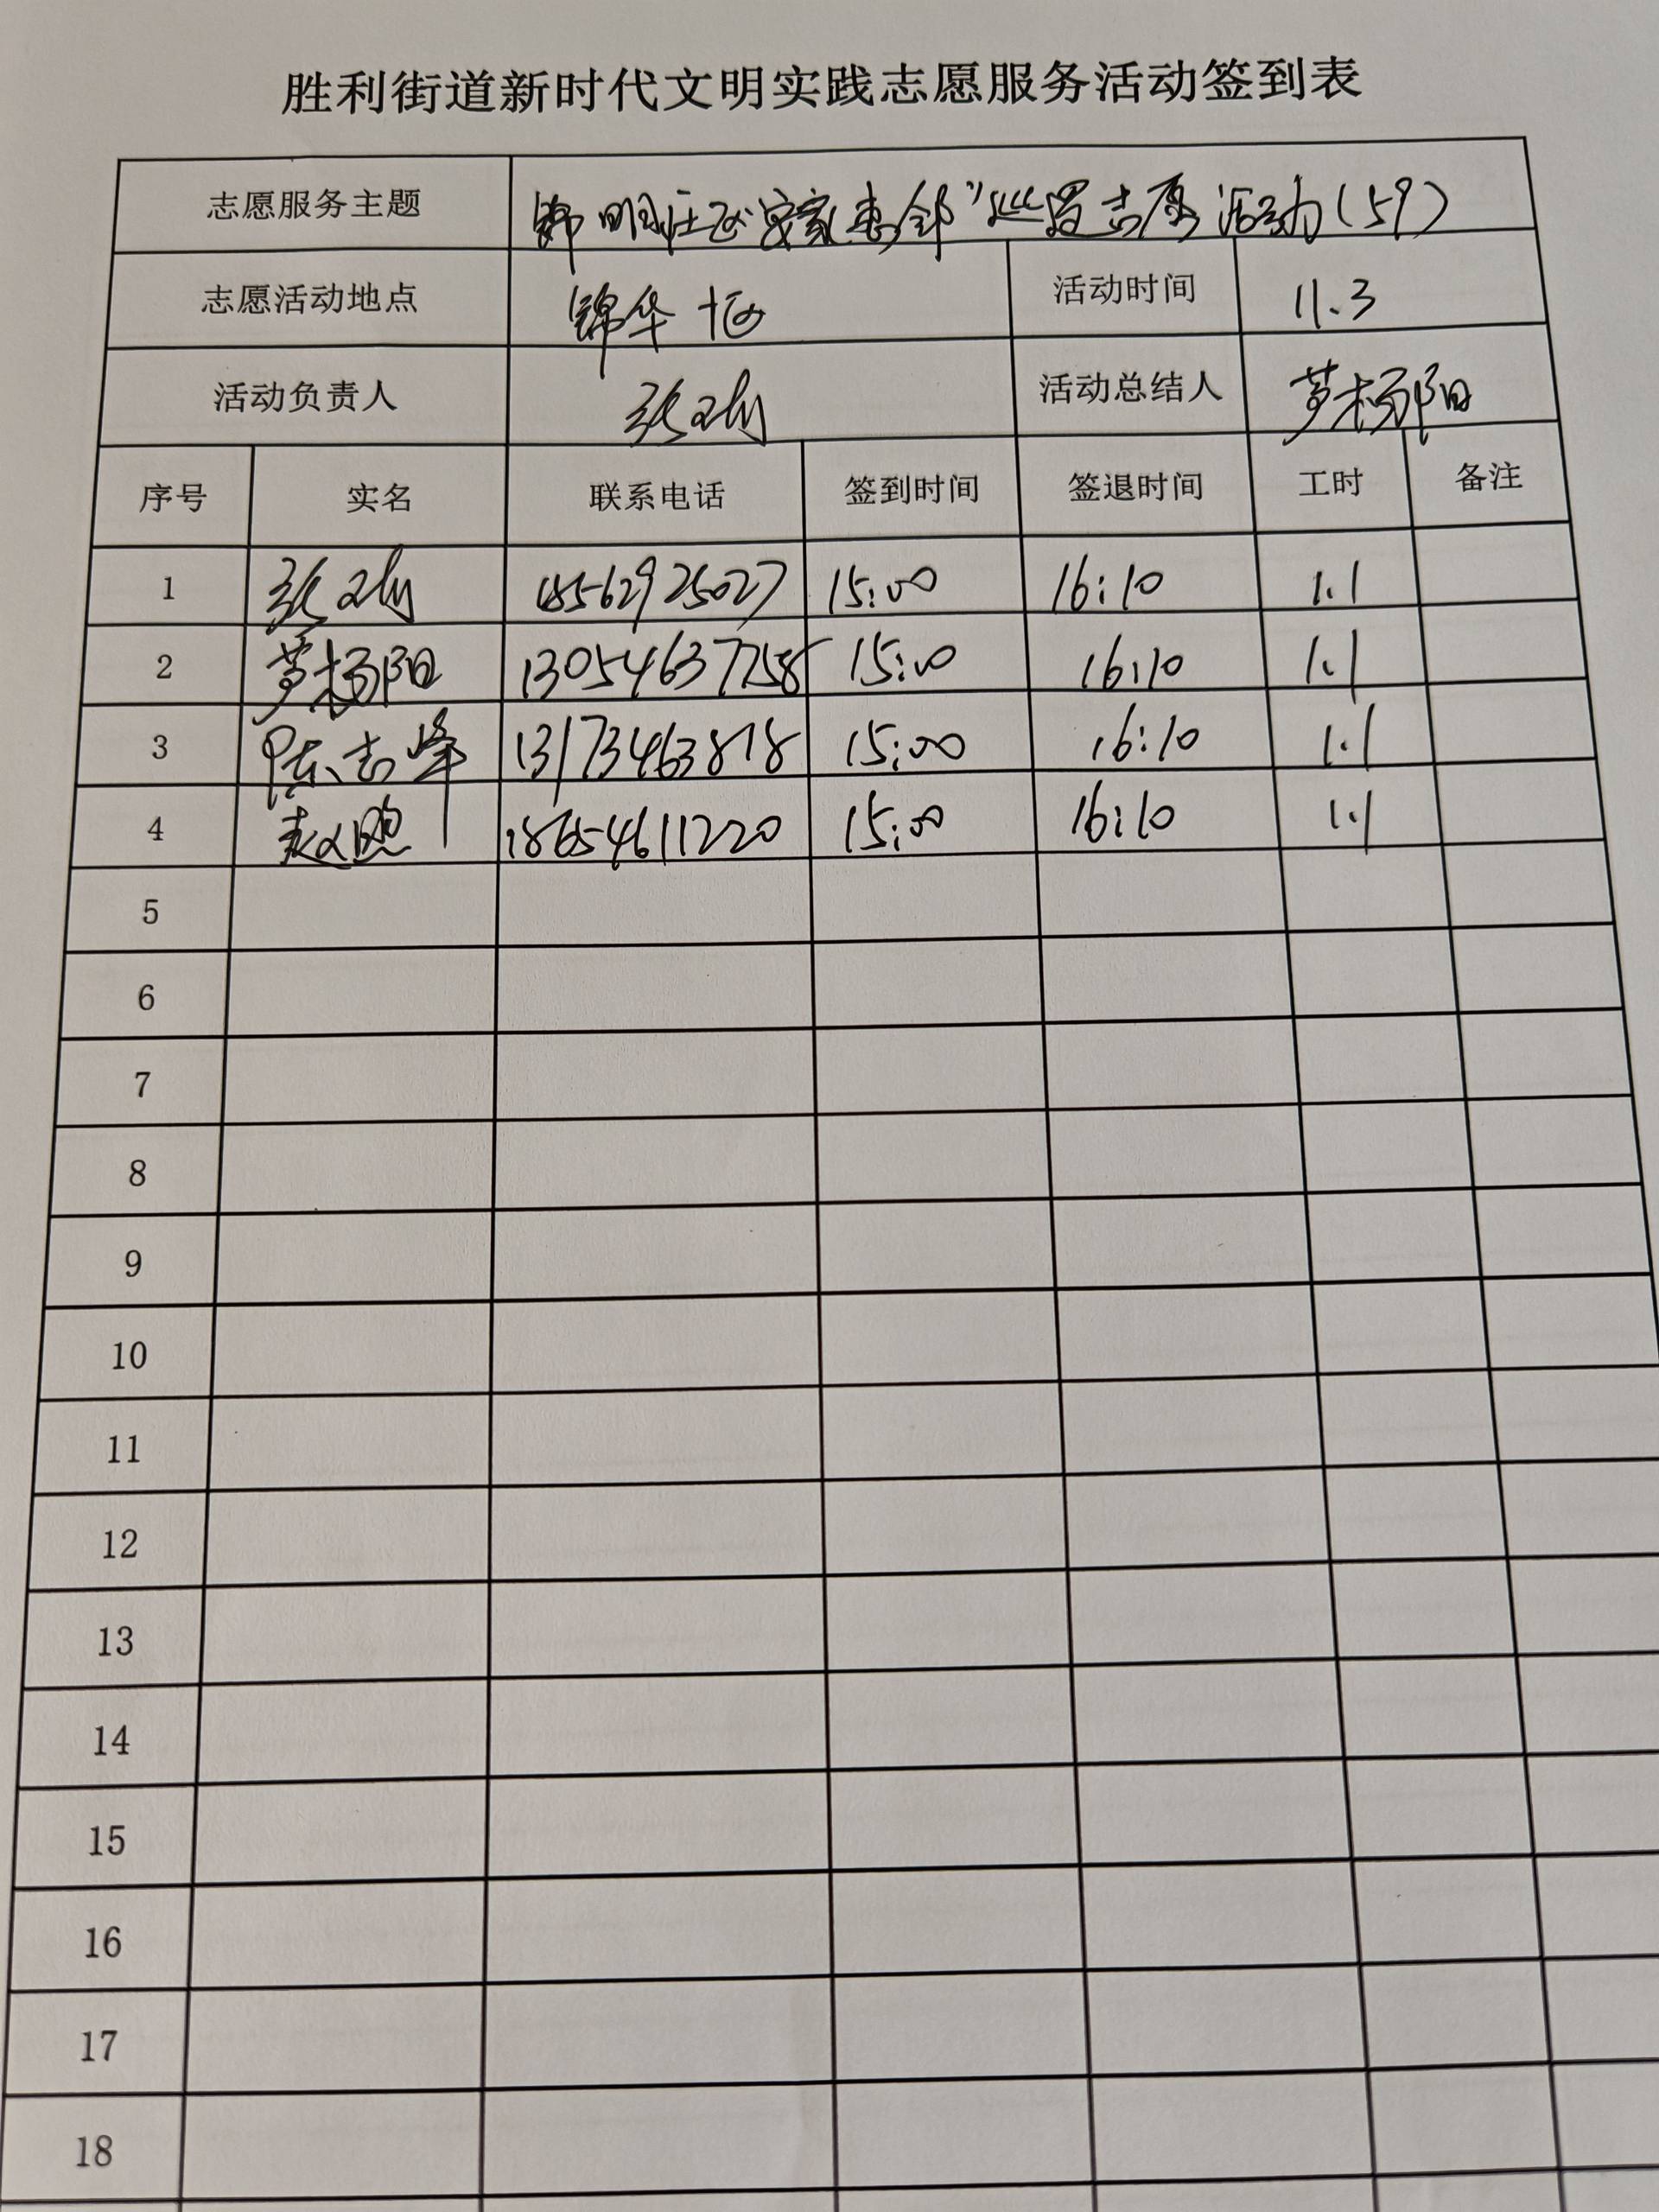 胜利街道新时代文明实践志愿服务活动签到表
志愿服务主题 锦明社区"安家惠邻"巡逻志愿活动(59)
志愿活动地点 锦华十区 活动时间 11.3
活动负责人 张 活动总结人 苟杨邵阳
序号 实名 联系电话 签到时间 签退时间 工时 备注
1 张 15562925027 15:00 16:10 1.1
2 13054637758 15:00 16:10 1.1
3 陈志峰 13173463818 15:00 16:10 1.1
4 赵煦 18654611220 15:00 16:10 1.1
5
6
7
8
9
10
11
12
13
14
15
16
17
18